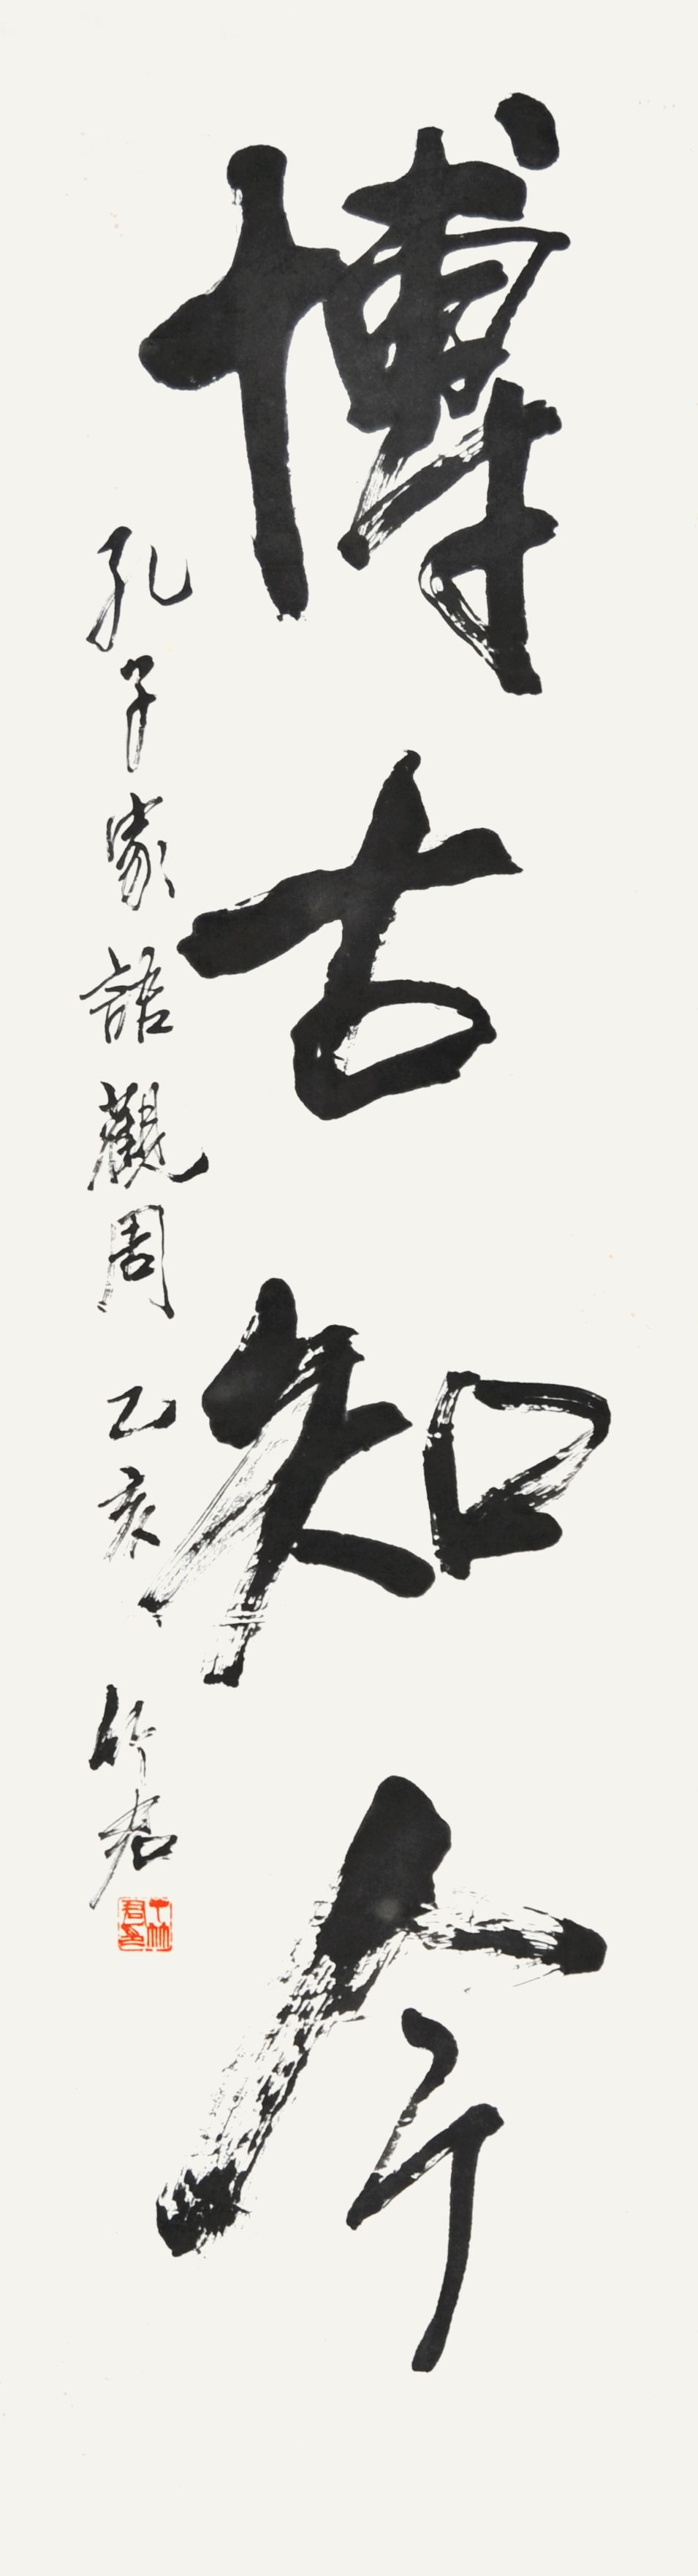 博古知今
孔子家語觀周 乙亥 竹君
丁竹君印